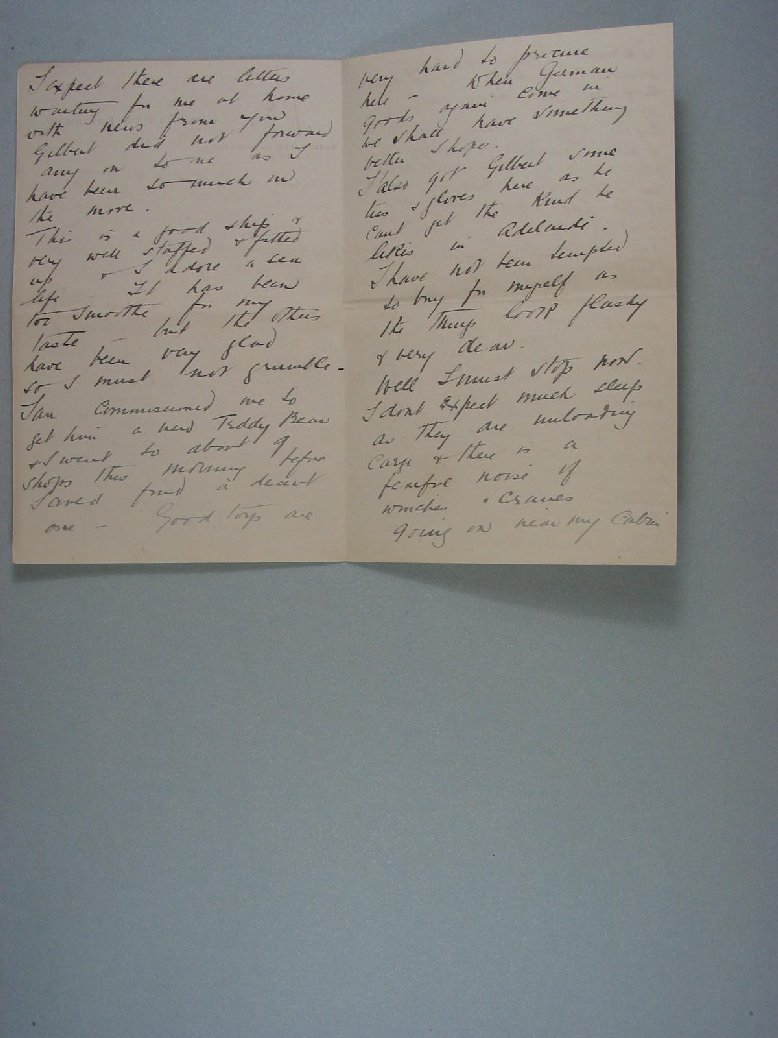 I expect there are letters
waiting for me at home
with news from you
Gilbert did not forward
any on to me as I
have been so much on
the move.
This is a good ship &
very well staffed & fitted
up & I adore a sea
life It has been
too smoothe for my
taste - but the others
have been very glad
so I must not grumble -
Ian commissioned me to
get him a new Teddy Bear
& I went to about 9
shops this morning before
I could find a decent
one - Good toys are
very hard to procure
here - When German
goods again come in
we shall have something
better I hope.
I also got Gilbert some
ties & gloves here as he
cant get the kind he
likes in Adelaide.
I have not been tempted
to buy for myself as
the things look flashy
& very dear.
Well I must stop now.
I dont expect much sleep
as they are unloading
cargo & there is a
fearful noise of
winches & cranes
going on near my Cabin